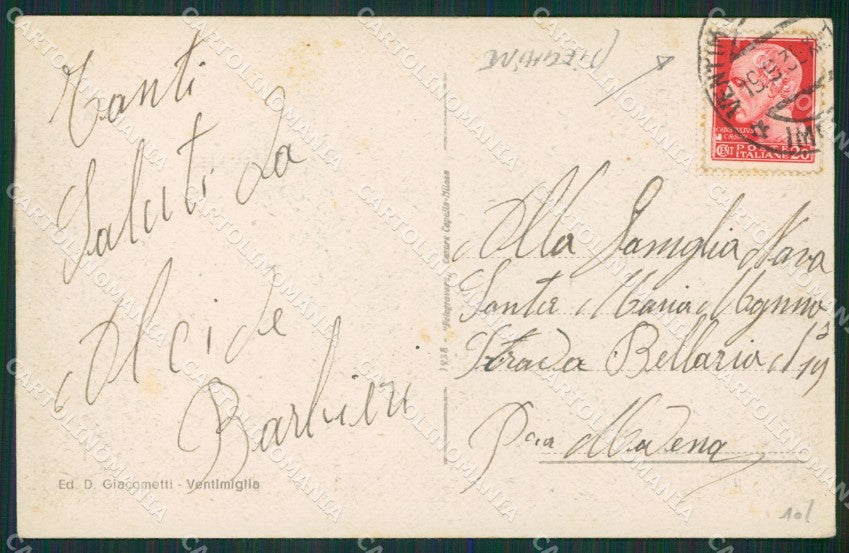 Tanti
Saluti da
Alcide
Barbieri
Ed. D. Giacometti - Ventimiglia
1938 - Fotogravure Cesare Capello - Milano
CENT POSTE
ITALIANE 20
IM
Alla Famiglia Nava
Santa Maria Mugnano
Strada Bellaria N° 19
Pcia Modena
101
CARTOLINOMANIA